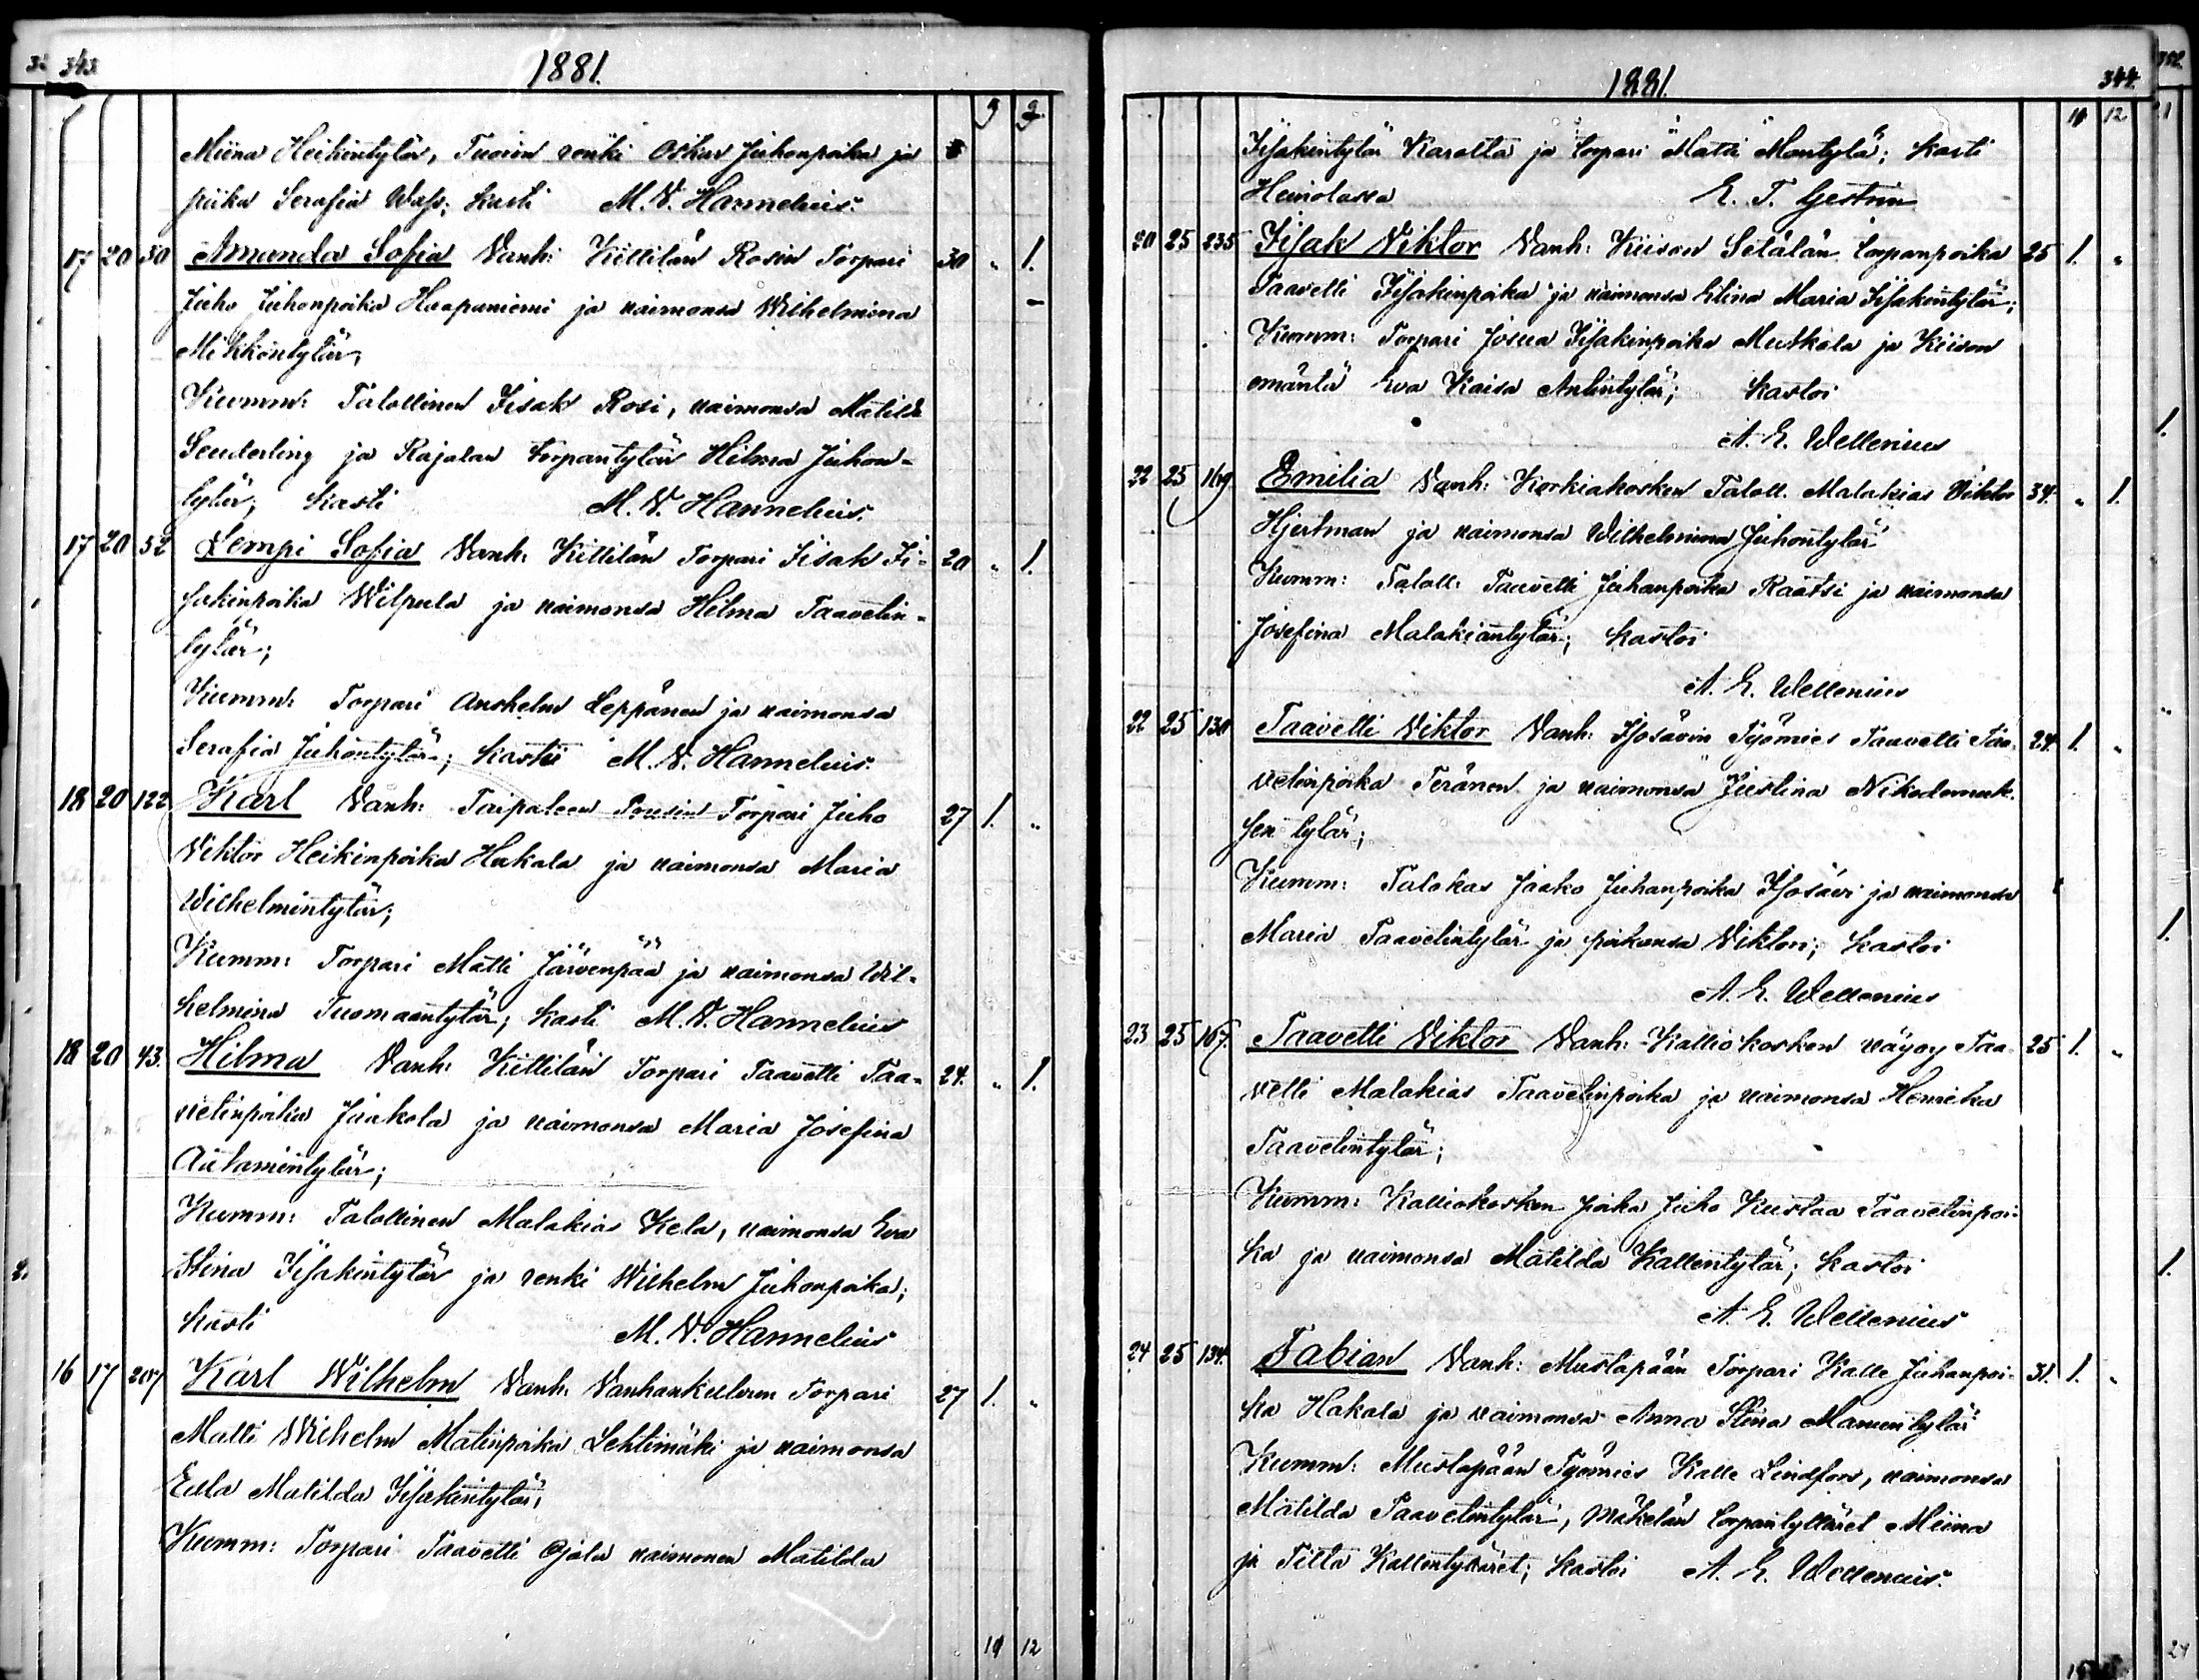 343. 1881.
9 9
Miina Heikintytär, Tuoirin renki Oskar Juhonpoika ja
piika Serafia Wass; kasti M. V. Hannelius.
17 20 50 Amanda Sofia Vanh: Kittilän Rosin Torpari 30 „ 1.
Juho Juhonpoika Haapaniemi ja vaimonsa Wilhelmina
Mikkontytär;
Kumm: Talollinen Iisak Rosi, vaimonsa Matilda
Seuderling ja Rajalan torpantytär Hilma Juhon-
tytär; kasti M. V. Hannelius.
17 20 52 Lempi Sofia Vanh: Kittilän Torpari Iisak Ii- 20 „ 1.
sakinpoika Wilpula ja vaimonsa Hilma Taavetin-
tytär;
Kumm: Torpari Anshelm Leppänen ja vaimonsa
Serafia Juhontytär; kasti M. V. Hannelius.
18 20 122 Karl Vanh: Taipaleen Torpari Juho 27 1. „
Viktor Heikinpoika Hakala ja vaimonsa Maria
Wilhelmintytär;
Kumm: Torpari Matti Järvenpää ja vaimonsa Wil-
helmina Tuomaantytär; kasti M. V. Hannelius
18 20 43. Hilma Vanh: Kittilän Torpari Taavetti Taa- 24. „ 1.
vetinpoika Jaakola ja vaimonsa Maria Josefina
Aatamintytär;
Kumm: Talollinen Malakias Kela, vaimonsa Eva
Stina Iisakintytär ja renki Wilhelm Juhonpoika;
kasti M. V. Hannelius
16 17 207 Karl Wilhelm Vanh: Vanhankylän Torpari 27 1. „
Matti Wilhelm Matinpoika Lehtimäki ja vaimonsa
Eula Matilda Iisakintytär;
Kumm: Torpari Taavetti Ojala vaimonen Matilda
11 12
1881. 344.
11 12
Iisakintytär Karolta ja torpari Matti Mantylä; kasti
Heinolassa E. T. Gestrin
20 25 235 Iisak Viktor Vanh: Kiison Setälän torpanpoika 25 1. „
Taavetti Iisakinpoika ja vaimonsa Elina Maria Iisakintytär;
Kumm: Torpari Josua Iisakinpoika Mutkala ja Kiison
emäntä Eva Kaisa Antintytär; kastoi
A. E. Wellenius
22 25 169 Emilia Vanh: Korkiakosken Taloll. Malakias Viktor 34. „ 1.
Hjertman ja vaimonsa Wilhelmina Juhontytär
Kumm: Taloll: Taavetti Juhanpoika Raatsi ja vaimonsa
Josefina Malakiantytär; kastoi
A. E. Wellenius
22 25 130 Taavetti Viktor Vanh: Isosävin Työmies Taavetti Taa- 24. 1. „
vetinpoika Teränen ja vaimonsa Justina Nikodemuk-
sen tytär;
Kumm: Talokas Jaako Juhanpoika Isosävi ja vaimonsa
Maria Taavetintytär ja poikansa Viktori; kastoi
A. E. Wellenius
23 25 167. Taavetti Viktor Vanh: Kalliokosken vävy Taa- 25 1. „
vetti Malakias Taavetinpoika ja vaimonsa Henrika
Taavetintytär;
Kumm: Kalliokosken poika Juho Kustaa Taavetinpoi-
ka ja vaimonsa Matilda Kallentytär; kastoi
A. E. Wellenius
24 25 134. Fabian Vanh: Mustapään Torpari Kalle Juhanpoi- 31. 1. „
ka Hakala ja vaimonsa Anna Stina Manuntytär
Kumm: Mustapään Työmies Kalle Lindfors, vaimonsa
Matilda Taavetintytär, Mäkelän torpantyttäret Miina
ja Titta Kallentyttäret; kastoi A. E. Wellenius.